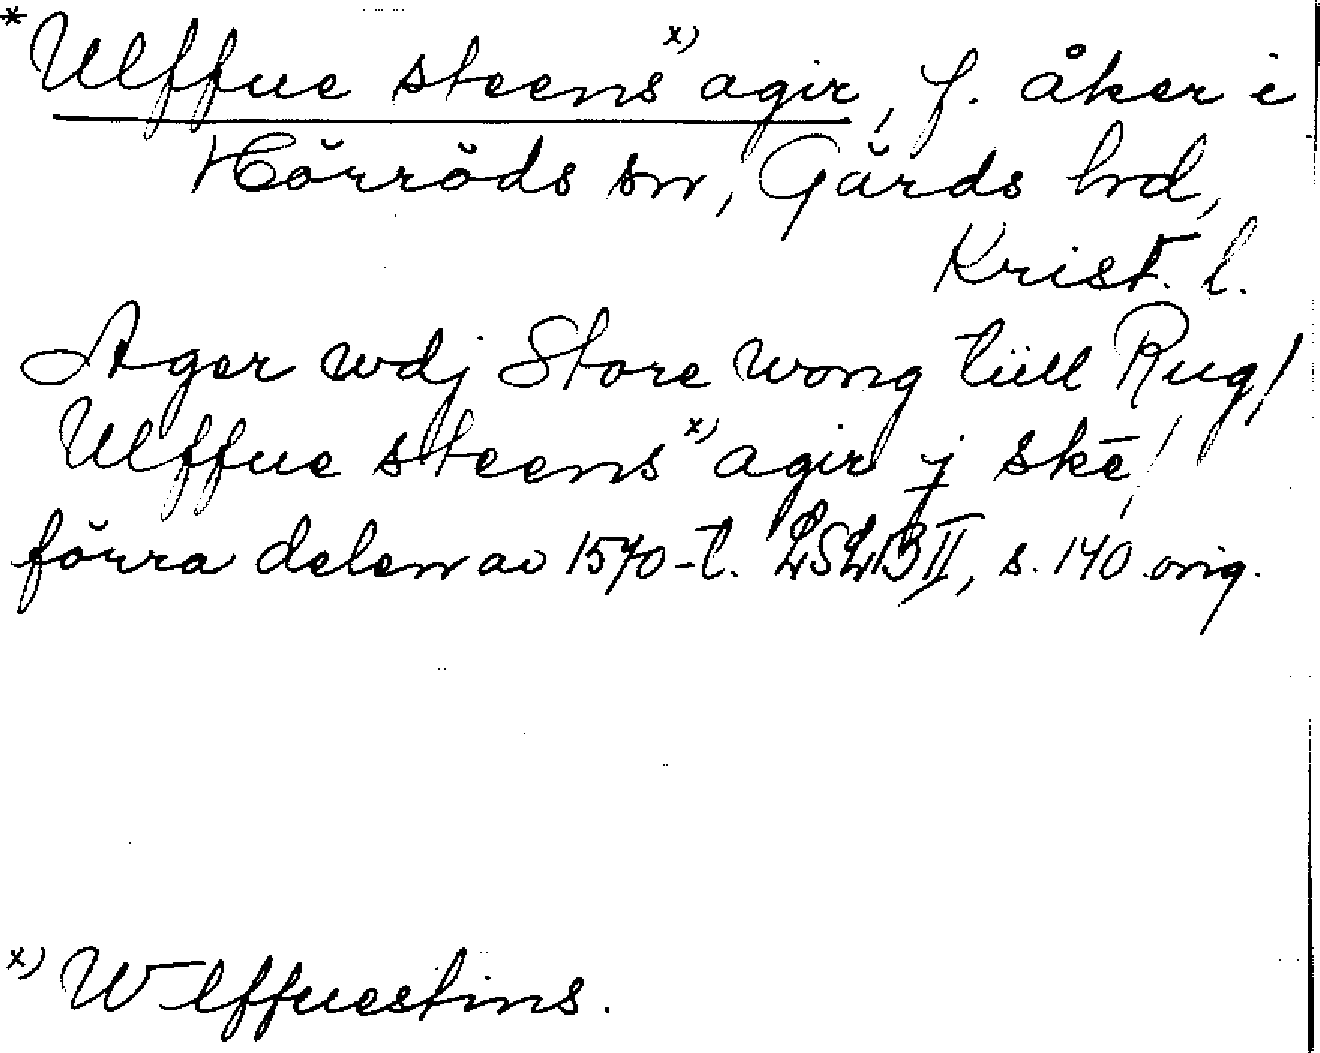 *Ulffue steens x) agir, f. åker i
Hörröds sn, Gärds hd,
Krist. l.
Ager wdj Store Wong tiill Rug/
Ulffue steens x) agir j skē/
förra delen av 1570-t. LSLB II, s. 140 orig.
x) Wlffuestins.